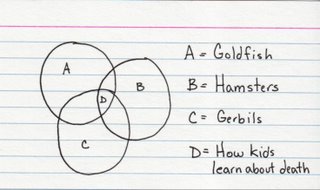 A = Goldfish
A
B
B = Hamsters
D
C = Gerbils
C
D = How kids
learn about death